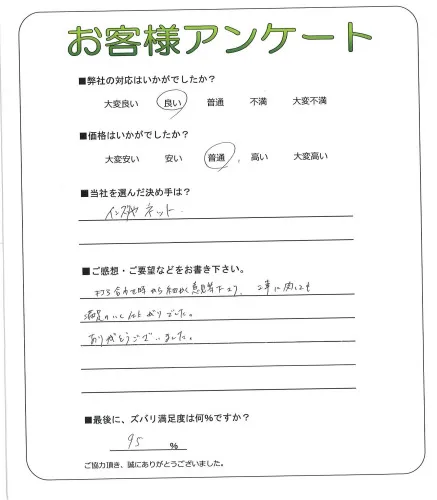 お客様アンケート
■弊社の対応はいかがでしたか?
大変良い 良い 普通 不満 大変不満
■価格はいかがでしたか?
大変安い 安い 普通 高い 大変高い
■当社を選んだ決め手は?
ネット.
■ご感想・ご要望などをお書き下さい。
打ち合わせ時から細かく意見等下さり、
満足のいく仕上がりでした。
ありがとうございました。
■最後に、ズバリ満足度は何%ですか?
95 %
ご協力頂き、誠にありがとうございました。